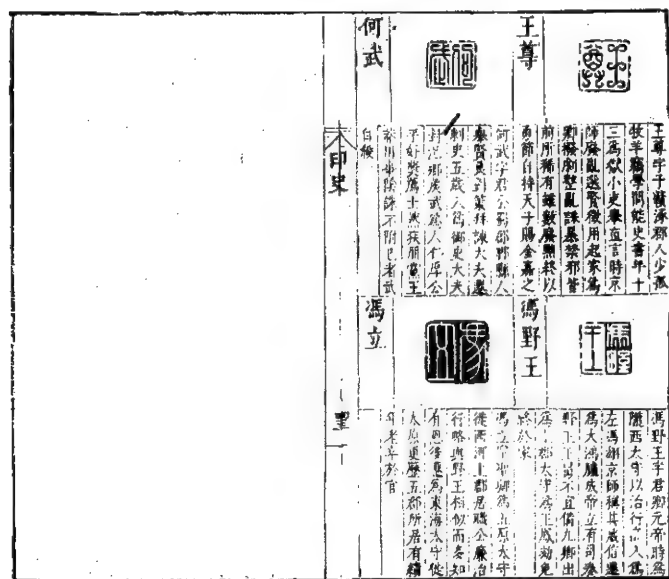 王尊
王尊
王尊字子贛涿郡人少孤
牧羊竊學問能史書年十
三為獄小吏舉直言時京
師廢亂選賢徵用起家為
卿撥劇整亂誅暴禁邪皆
前所稀有雖數廢黜終以
勇節自持天子賜金嘉之
何武
何武
何武字君公蜀郡郫縣人
舉賢良對策拜諫大夫遷
刺史五歲入為御史大夫
封氾鄉侯武為人仁厚公
平好獎薦士然疾朋黨王
莽用事陰誅不附已者武
自殺
馮野王
馮野王
馮野王字君卿元帝時為
隴西太守以治行高入為
左馮翊京師稱其威信遷
為大鴻臚成帝立有司奏
野王王舅不宜備九卿出
為上郡太守為王鳳劾免
終於家
馮立
馮立
馮立字聖卿為五原太守
徙西河上郡居職公廉治
行略與野王相似而多知
有恩後遷為東海太守徙
太原更歷五郡所居有績
年老卒於官
印史